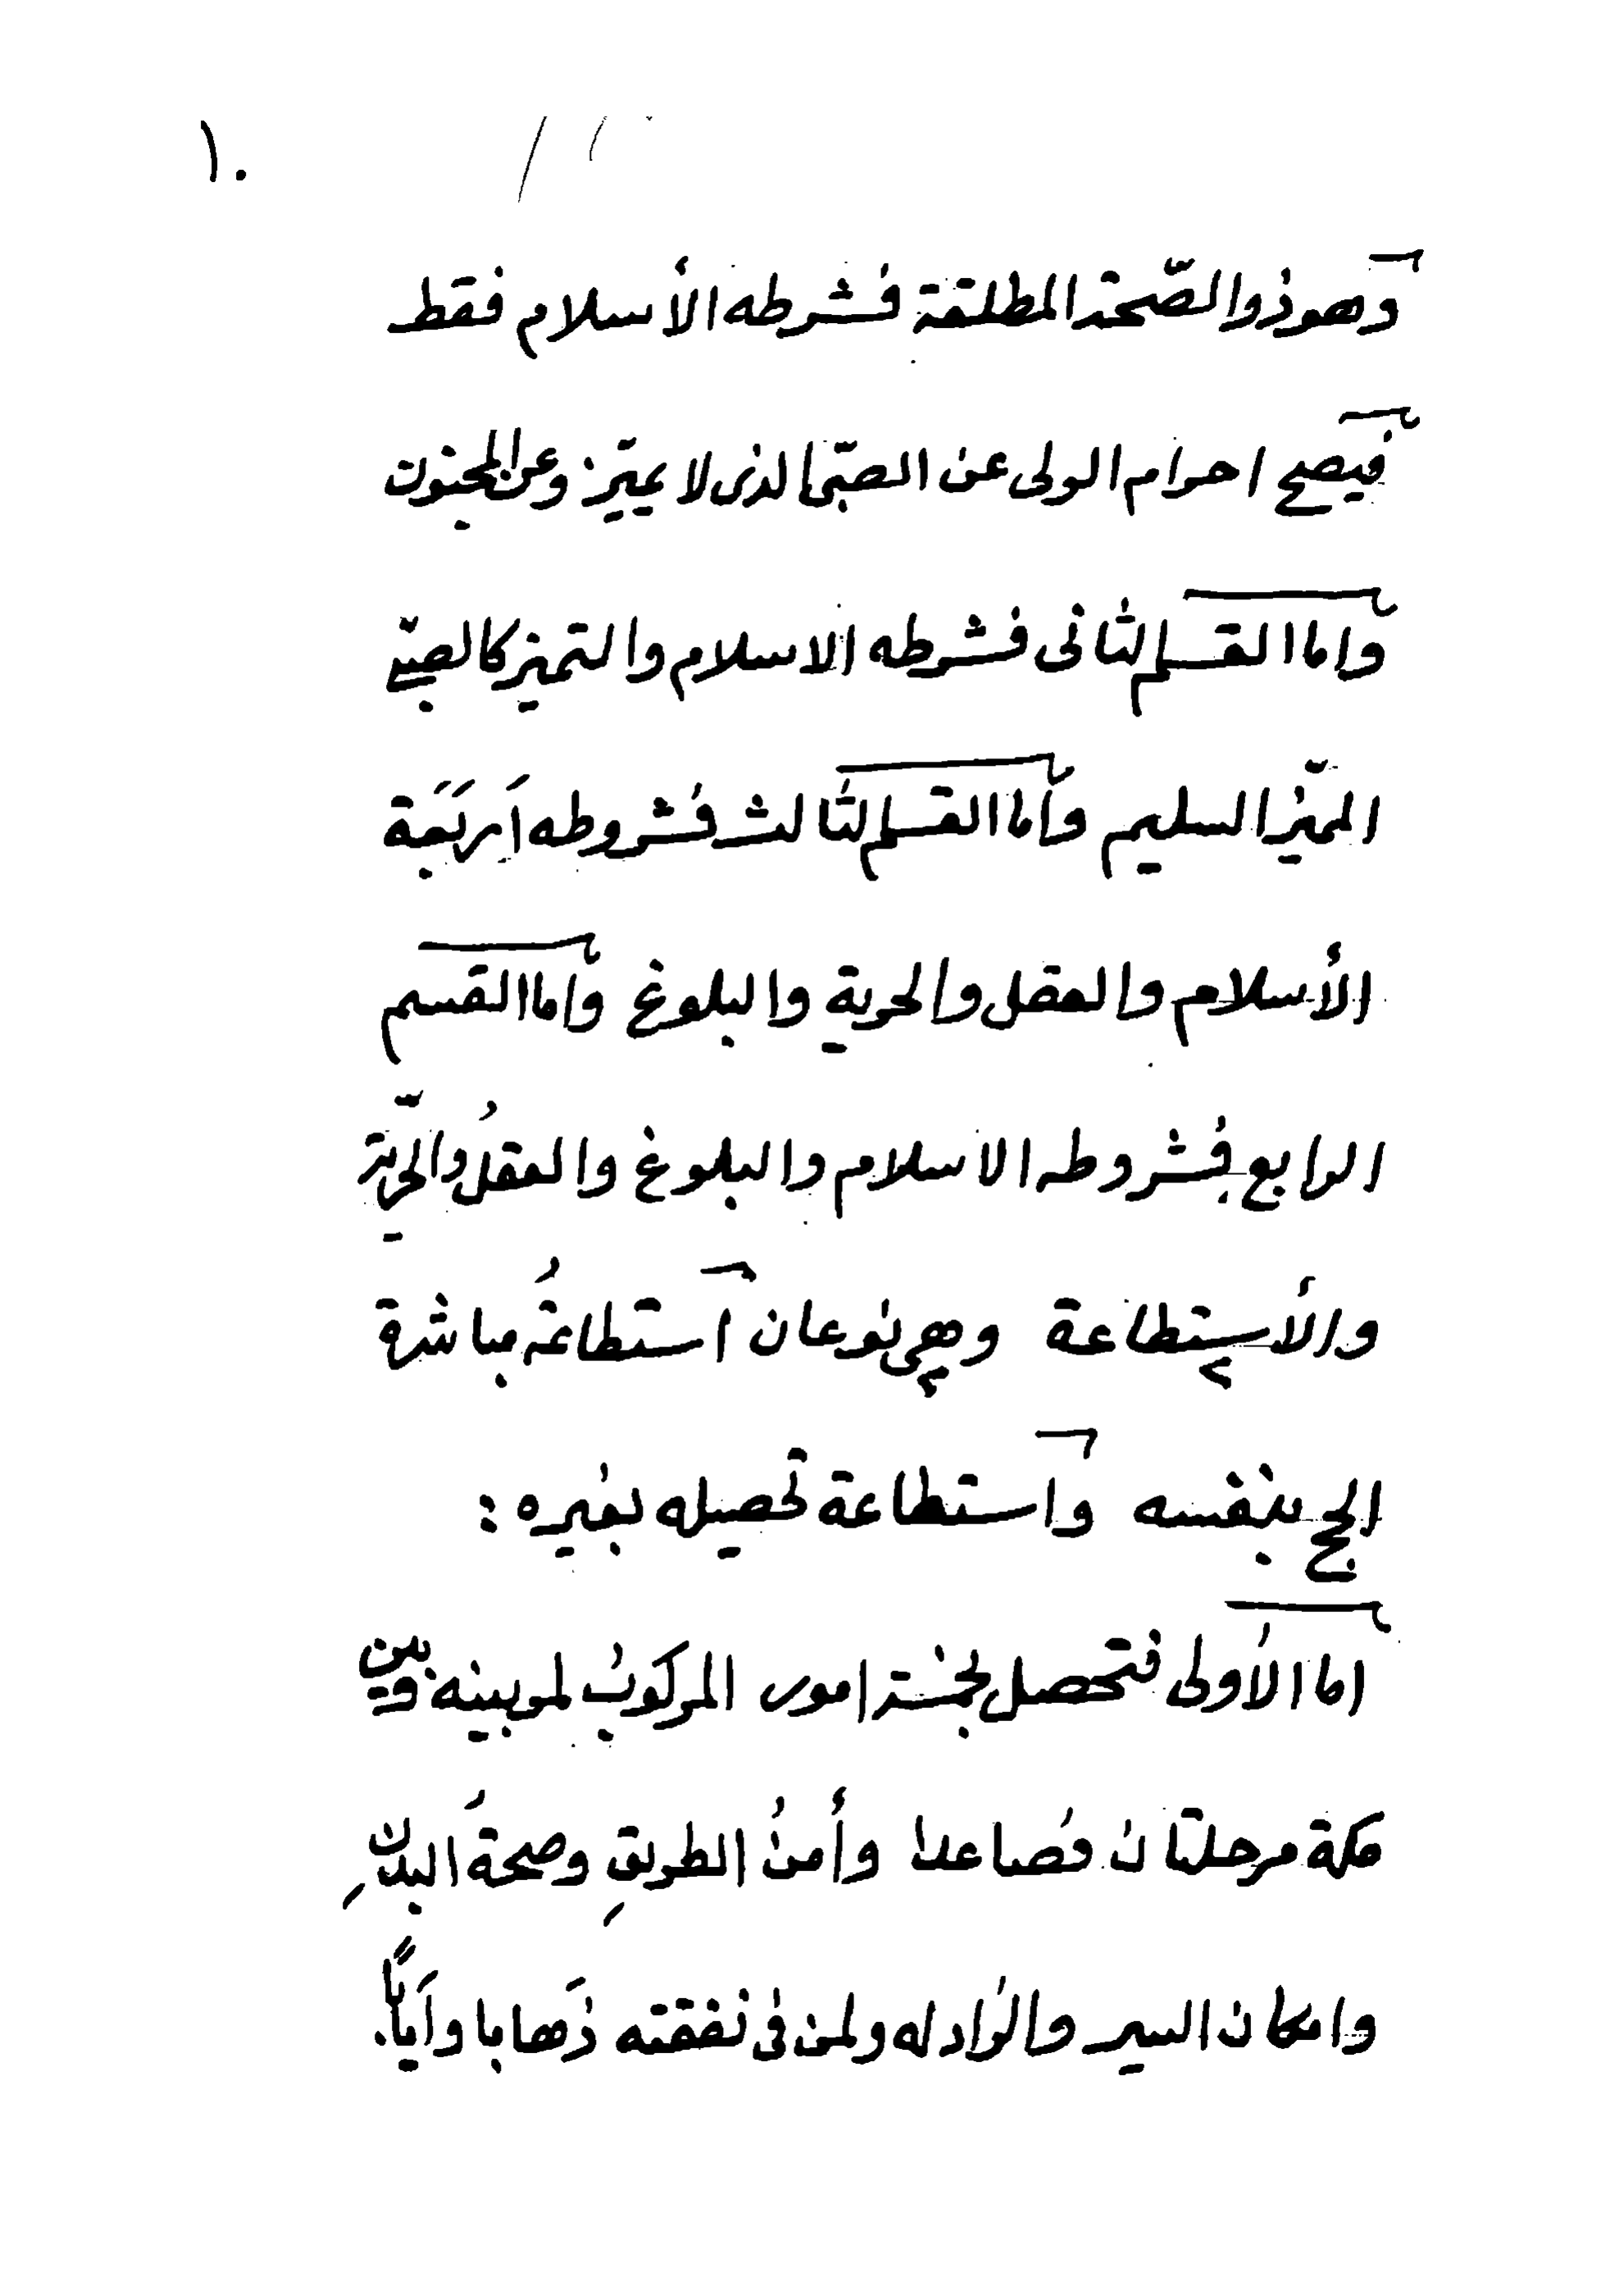 ١٠
وهو ذو الصّحة المطلقة فشرطه الأسلام فقط
فيصح احرام الولى عن الصبّى الذى لا يميّز وعن المجنون
واما القسم الثانى فشرطه الاسلام والتميز كالصبىّ
المميّز السليم وأما القسم الثالث فشروطه أَربَعَة
الأسلام والعقل والحرية والبلوغ وأما القسم
الرابع فشروطه الاسلام والبلوغ والعقلُ والحرّية
والأستطاعة وهى نوعان استطاعةُ مباشرة
الحج بنفسه واستطاعة تحصيله بغيره :
اما الأولى فتحصل بخمسة امور المركوب لمن بينه وبين
مكة مرحلتان فصاعدا وأمنُ الطريقِ وصحةُ البدنِ
وامكان السير والزاد له ولمن فى نفقته ذَهابا وأَياباً.